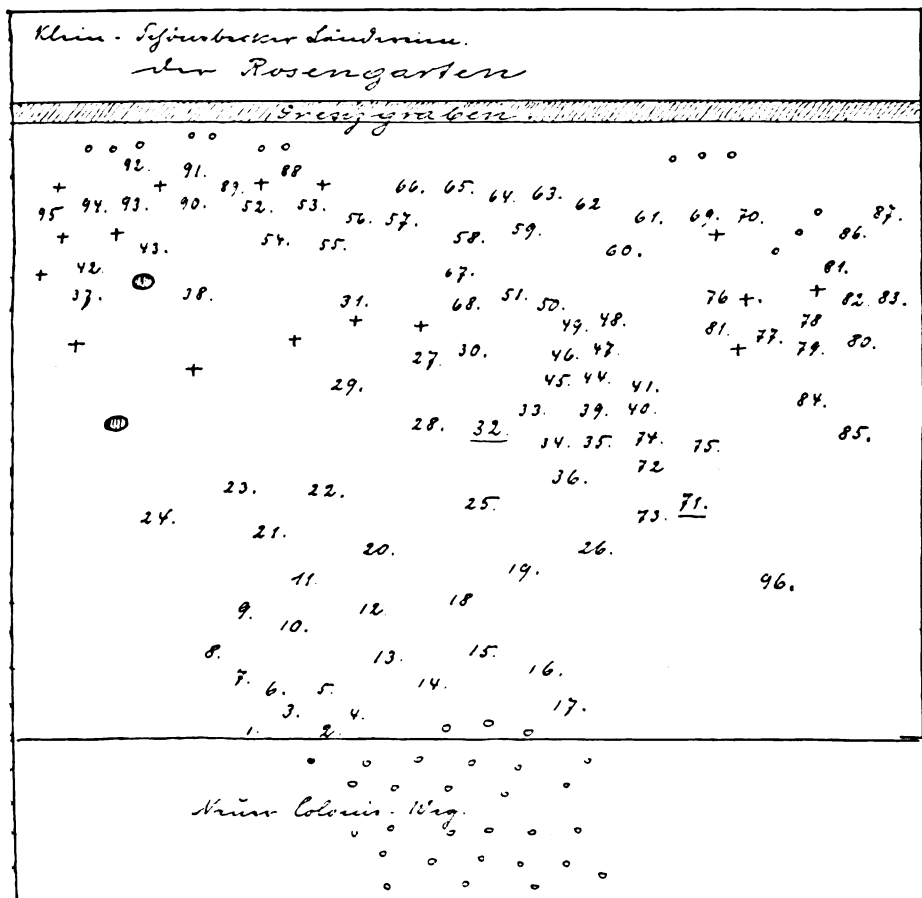 Klein-Schönebecker Ländereien.
der Rosengarten
Grenzgraben.
92. 91. 88
89. 66. 65. 64. 63. 62
95 94. 93. 90. 52. 53. 56. 57. 61. 69. 70. 87.
43. 54. 55. 58. 59. 60. 86.
42. 67. 81.
37. 38. 31. 68. 51. 50. 76 82. 83.
49. 48. 81. 77. 78
27. 30. 46. 47. 79. 80.
29. 45. 44. 41.
33. 39. 40. 84.
28. 32. 34. 35. 74. 75. 85.
36. 72
23. 22. 25. 73. 71.
24. 21.
20. 26.
11. 19. 96.
9. 10. 12. 18
8. 13. 15. 16.
7. 6. 5. 14.
3. 4. 17.
1. 2.
Neuer Colonie-Weg.